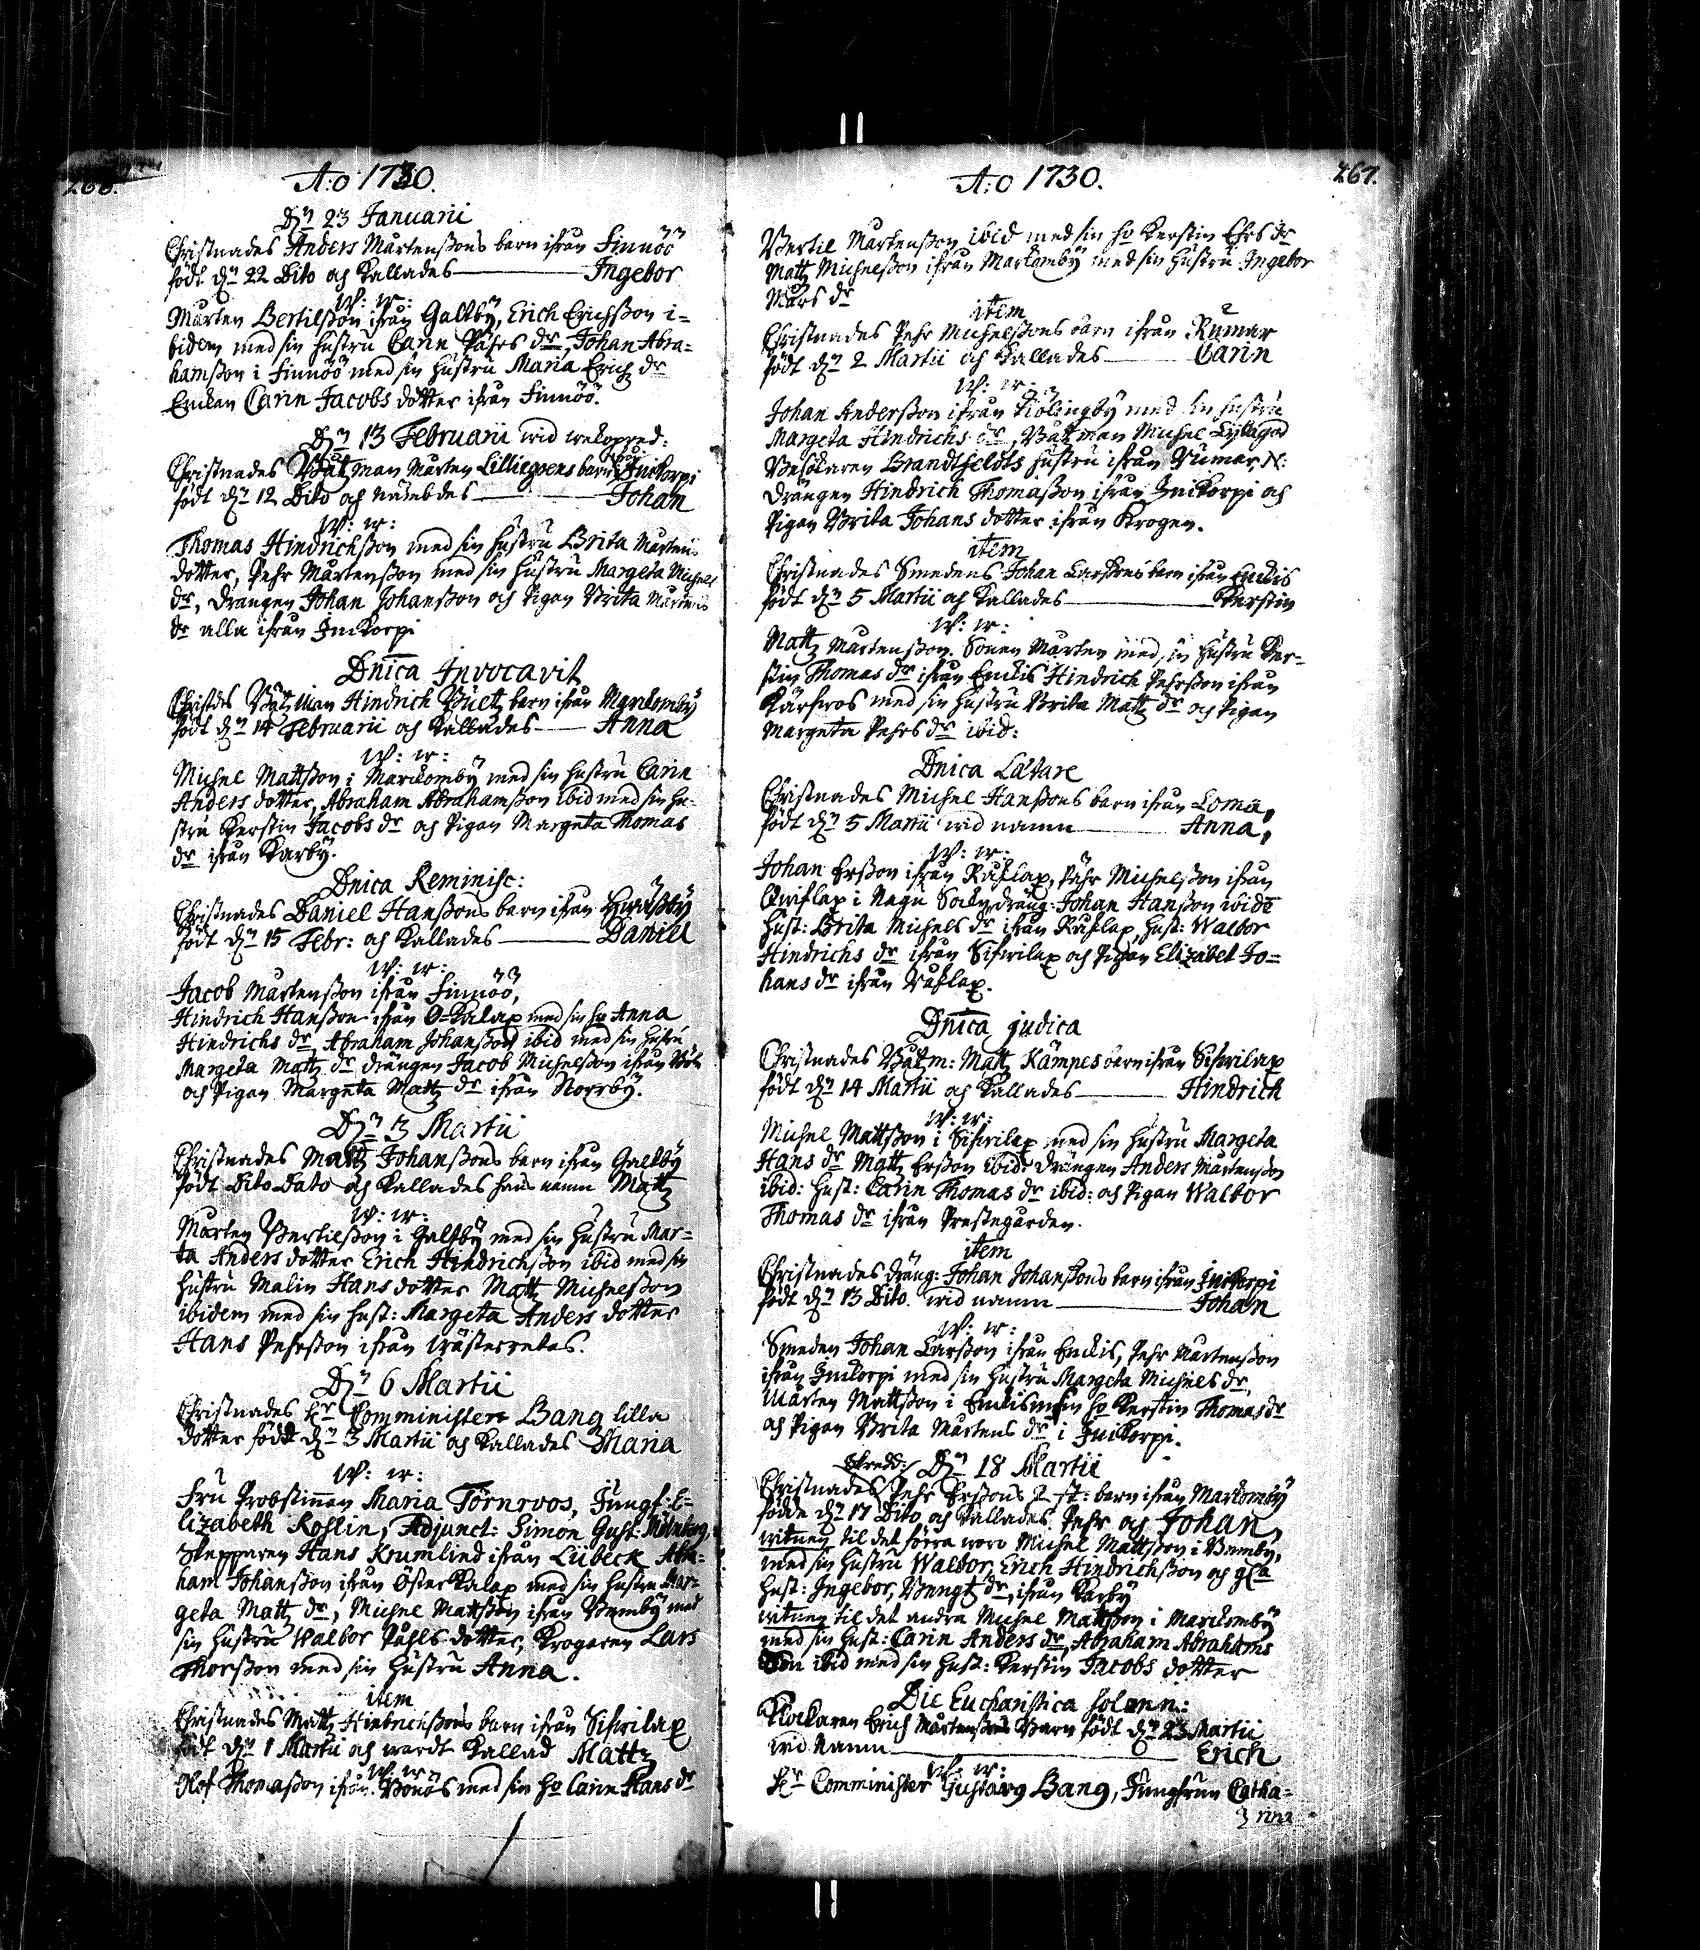 266.
A:o 1730.
Dn 23 Januarii
Christnades Anders Mårtenssons barn ifrån Finnöö
födt dn 22 Dito och Kallades Ingebor
W: w:
Mårten Bertilsson ifrån Galtby, Erich Erichsson i=
bidem med sin hustru Carin Påhrs dr, Johan Abra=
hamsson i Finnöö med sin hustru Maria Erich dr
Enckan Carin Jacobs dotter ifrån Finnöö.
Dn 13 Februarii wid wekopred:
Christnades Båtzman Mårten Lilliegrens barn ifrån Inikorpi
födt dn 12 Dito och nämbdes Johan
W: w:
Thomas Hindrichsson med sin hustru Brita Mårtens
dotter, Pehr Mårtensson med sin hustru Margeta Michels
dr, Drängen Johan Johansson och Pigan Brita Mårtens
dr alla ifrån Inikorpi
Dnica Invocavit
Christdes Båtzman Hindrich Büetz barn ifrån Marckomby
födt dn 14 Februarii och Kallades Anna
W: w:
Michel Mattsson i Marckomby med sin hustru Carin
Anders dotter, Abraham Abrahamsson ibid med sin hu-
stru Kerstin Jacobs dr och Pigan Margeta Thomas
dr ifrån Karby.
Dnica Reminisc:
Christnades Daniel Hanssons barn ifrån
födt dn 15 Febr: och Kallades Daniel
W: w:
Jacob Mårtensson ifrån Finnöö,
Hindrich Hansson ifrån Ö=Kalax med sin ho Anna
Hindrichs dr, Abraham Johansson ibid med sin hustru
Margeta Matz dr drängen Jacob Michelsson ifrån
och Pigan Margeta Matz dr ifrån Norrby.
Dn 3 Martii
Christnades Matz Johanssons barn ifrån Galtby
födt Dito Dato och Kallades hans namn Matz
W: w:
Mårten Bertilsson i Galtby med sin hustru Mar=
ta Anders dotter Erich Hindrichsson ibid med sin
hustru Malin Hans dotter Matz Michelsson
ibidem med sin hust: Margeta Anders dotter
Hans Pehrsson ifrån Wästerretas.
Dn 6 Martii
Christnades hr Comministern Bang lilla
dotter födt dn 3 Martii och Kallades Maria
W: w:
Fru Probstinnan Maria Törnroos, Jungf: E=
lizabeth Roslin, Adjunct: Simon Gust:
Skepparen Hans Krumlind ifrån Lübeck Abra=
ham Johansson ifrån ÖsterKalax med sin hustru Mar=
geta Matz dr, Michel Mattsson ifrån Bemby med
sin hustru Walbor Påhls dotter, Krogaren Lars
Thorsson med sin hustru Anna.
item
Christnades Matz Hindrichssons barn ifrån Siswilax
födt dn 1 Martii och wardt Kallad Matz
W: w:
Olof Thomasson ifrån med sin ho Carin Hans dr
267.
A:o 1730.
Bertil Mårtensson ibid med sin ho Kerstin Ehrs dr
Matz Michelsson ifrån Markomby med sin hustru Ingebor
Mårs dr
item
Christnades Pehr Michelssons barn ifrån Rumar
födt dn 2 Martii och Kallades Carin
W: w:
Johan Andersson ifrån Kiölingby med sin hustru
Margeta Hindrichs dr, Båtzman Michel
Besökaren Brandtfeldts hustru ifrån Rumar N:
Drängen Hindrich Thomasson ifrån Inikorpi och
Pigan Brita Johans dotter ifrån Krogen.
item
Christnades Smedens Johan Larssons barn ifrån Enckis
födt dn 5 Martii och Kallades Kerstin
W: w:
Matz Mårtensson. Sonen Mårten med sin hustru Ker=
stin Thomas dr ifrån Enckis Hindrich Pehrsson ifrån
med sin hustru Brita Matz dr och Pigan
Margeta Pehrs dr ibid:
Dnica Lætare
Christnades Michel Hanssons barn ifrån Loma,
födt dn 5 Martii wid namn Anna,
W: w:
Johan Ersson ifrån Räfslax, Påhr Michelsson ifrån
i Nagu Sokn, dräng: Johan Hansson ibidē
Hust: Brita Michels dr ifrån Räfslax, Hust: Walbor
Hindrichs dr ifrån Siswilax och Pigan Elizabet Jo=
hans dr ifrån Räfslax.
Dnica judica
Christnades Båtzm: Matz Kämpes barn ifrån Siswilax
födt dn 14 Martii och Kallades Hindrich
W: w:
Michel Mattsson i Siswilax med sin hustru Margeta
Hans dr Matz Ersson ibid: drängen Anders Mårtensson
ibid: Hust: Carin Thomas dr ibid: och Pigan Walbor
Thomas dr ifrån Prestegården.
item
Christnades dräng: Johan Johanssons barn ifrån Inikorpi
födt dn 13 Dito. wid namn Johan
W: w:
Smeden Johan Larsson ifrån Enckis, Pehr Mårtensson
ifrån Inikorpi med sin hustru Margeta Michels dr,
Mårten Mattsson i Enckis m: sin ho Kerstin Thomas dr
och Pigan Brita Mårtens dr i Inikorpi.
Dn 18 Martii
Christnades Pehr Erssons 2 st: barn ifrån Markomby
födde dn 17 Dito och Kallades Pehr och Johan,
witnen til det förra woro Michel Mattsson i Bemby,
med sin hustru Walbor, Erich Hindrichsson och
Hust: Ingebor, Bengt dr, ifrån Karby
witnen til det andra Michel Mattsson i Marckomby
med sin hust: Carin Anders dr, Abraham Abrahams
son ibid med sin hust: Kerstin Jacobs dotter
Die Eucharistica solenn.:
Klockaren Erich Mårtenssons Barn födt dn 23 Martii
wid Namn Erich
W: w:
Hr Comminister Gustavg Bang, Jungfrun Catha=
rina